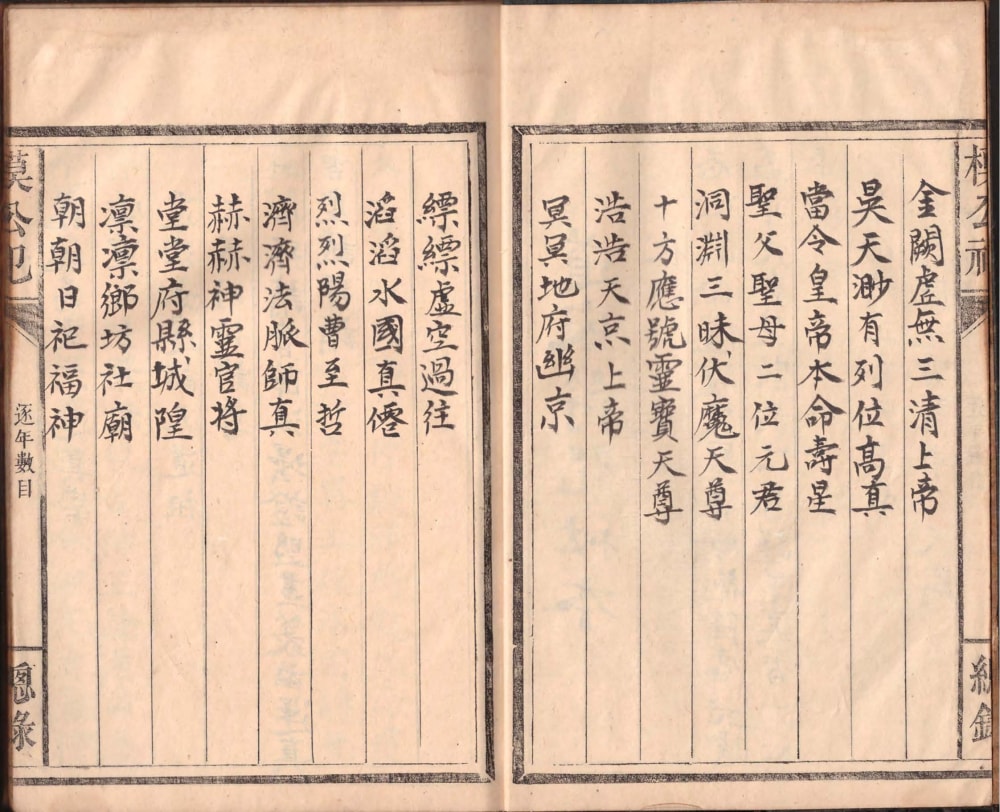 金闕虛無三清上帝
昊天渺有列位高真
當令皇帝本命壽星
聖父聖母二位元君
洞淵三昧伏魔天尊
十方應號靈寶天尊
浩浩天京上帝
冥冥地府幽京
縹縹虛空過往
滔滔水國真僊
烈烈陽曹至哲
濟濟法脈師真
赫赫神靈官將
堂堂府縣城隍
凛凛鄉坊社廟
朝朝日祀福神
逐年數目
總錄